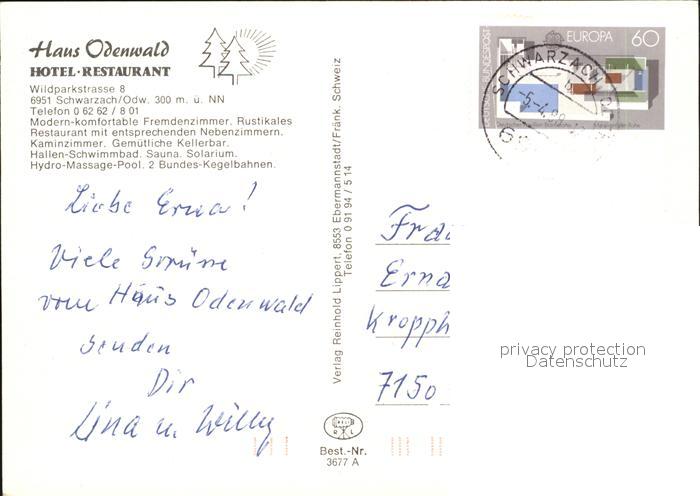 Haus Odenwald
HOTEL·RESTAURANT
Wildparkstrasse 8
6951 Schwarzach/Odw. 300 m. ü. NN
Telefon 0 62 62 / 8 01
Modern-komfortable Fremdenzimmer. Rustikales
Restaurant mit entsprechenden Nebenzimmern.
Kaminzimmer. Gemütliche Kellerbar.
Hallen-Schwimmbad. Sauna. Solarium.
Hydro-Massage-Pool. 2 Bundes-Kegelbahnen.
Liebe Erna!
Viele Grüsse
vom Haus Odenwald
senden
Dir
Lina u. Willy
Verlag Reinhold Lippert, 8553 Ebermannstadt/Fränk. Schweiz
Telefon 0 91 94 / 5 14
R L
Best.-Nr.
3677 A
DEUTSCHE BUNDESPOST
EUROPA 60
SCHWARZACH
-5.-4.
Frau
Erna
Kropph
7150
privacy protection
Datenschutz